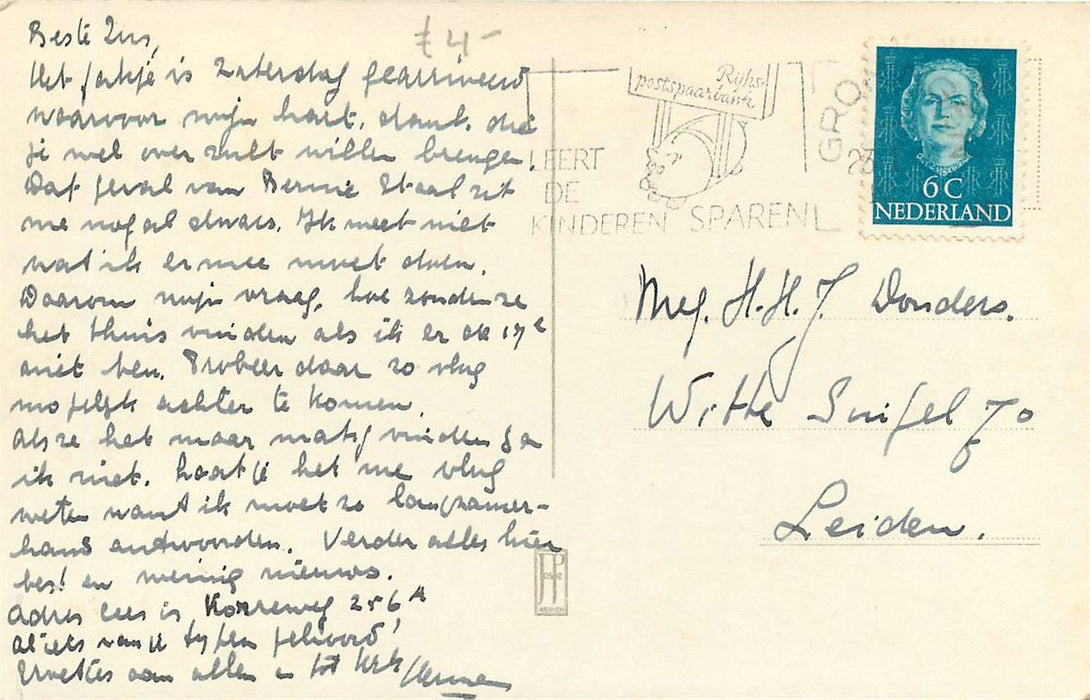 Beste Zus,
Het pakje is Zaterdag gearriveerd
waarvoor mijn hart. dank. die
je wel over zult willen brengen.
Dat geval van Bennie Staal zit
me nogal dwars. Ik weet niet
wat ik ermee moet doen.
Daarom mijn vraag, hoe zouden ze
het thuis vinden als ik er de 17e
niet ben. Probeer daar zo vlug
mogelijk achter te komen.
Als ze het maar matig vinden ga
ik niet. Laat je het me vlug
weten want ik moet zo langzamer-
hand antwoorden. Verder alles hier
best en weinig nieuws.
Adres Cees is, Korreweg 256A
Al iets van je gehoord?
Groetjes aan allen en tot
£ 4-
Rijks-
postspaarbank
LEERT
DE
KINDEREN SPAREN
GRO
6 C
NEDERLAND
Mej. H.H.J. Donders.
Witte Singel 70
Leiden.
JP